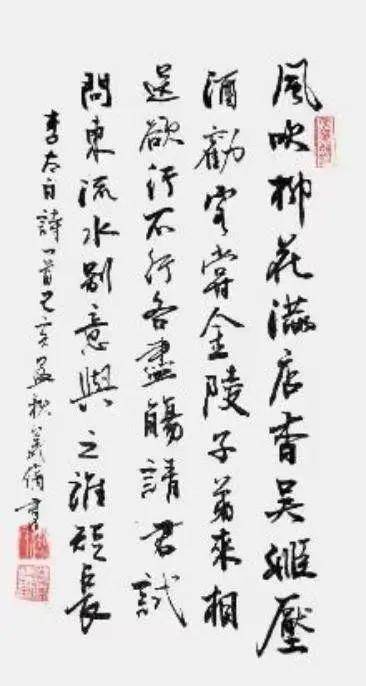 風吹柳花滿店香吳姬壓
酒勸客嘗金陵子弟來相
送欲行不行各盡觴請君試
問東流水別意與之誰短長
李太白詩一首己亥孟秋書